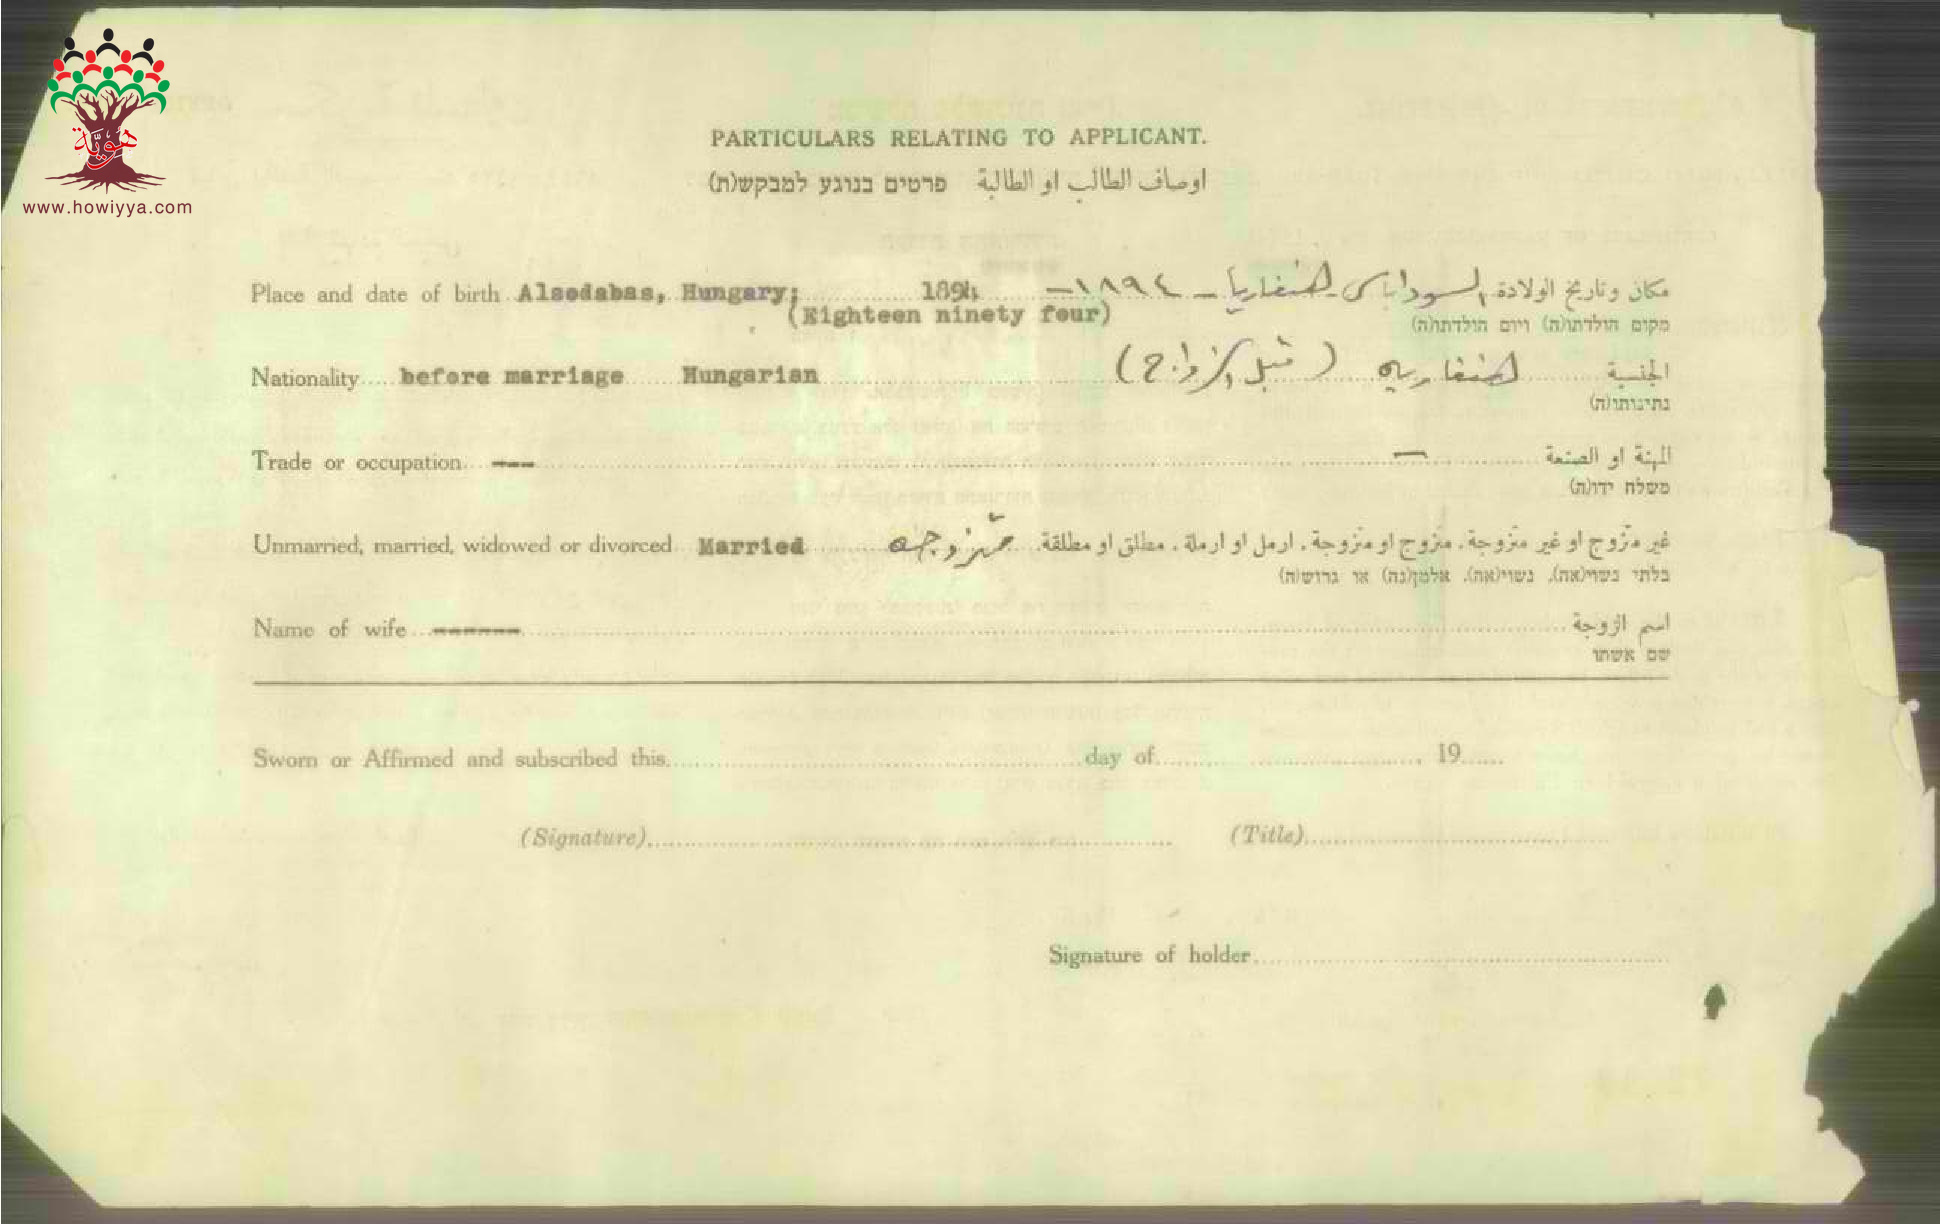 هوية
www.howiyya.com
PARTICULARS RELATING TO APPLICANT.
اوصاف الطالب او الطالبة פרטים בנוגע למבקש(ת)
Place and date of birth Alsodabas, Hungary; 1894 السوداباس هنغاريا - ١٨٩٤ - مكان وتاريخ الولادة
(Eighteen ninety four) מקום הולדתו(ה) ויום הולדתו(ה)
Nationality before marriage Hungarian هنغاريه (قبل الزواج) الجنسية
נתינותו(ה)
Trade or occupation --- — المهنة او الصنعة
משלח ידו(ה)
Unmarried, married, widowed or divorced Married متزوجه غير متزوج او غير متزوجة. متزوج او متزوجة. ارمل او ارملة. مطلق او مطلقة.
בלתי נשוי(אה), נשוי(אה). אלמן(נה) או גרוש(ה)
Name of wife ------ اسم الزوجة
שם אשתו
Sworn or Affirmed and subscribed this day of 19
(Signature) (Title)
Signature of holder